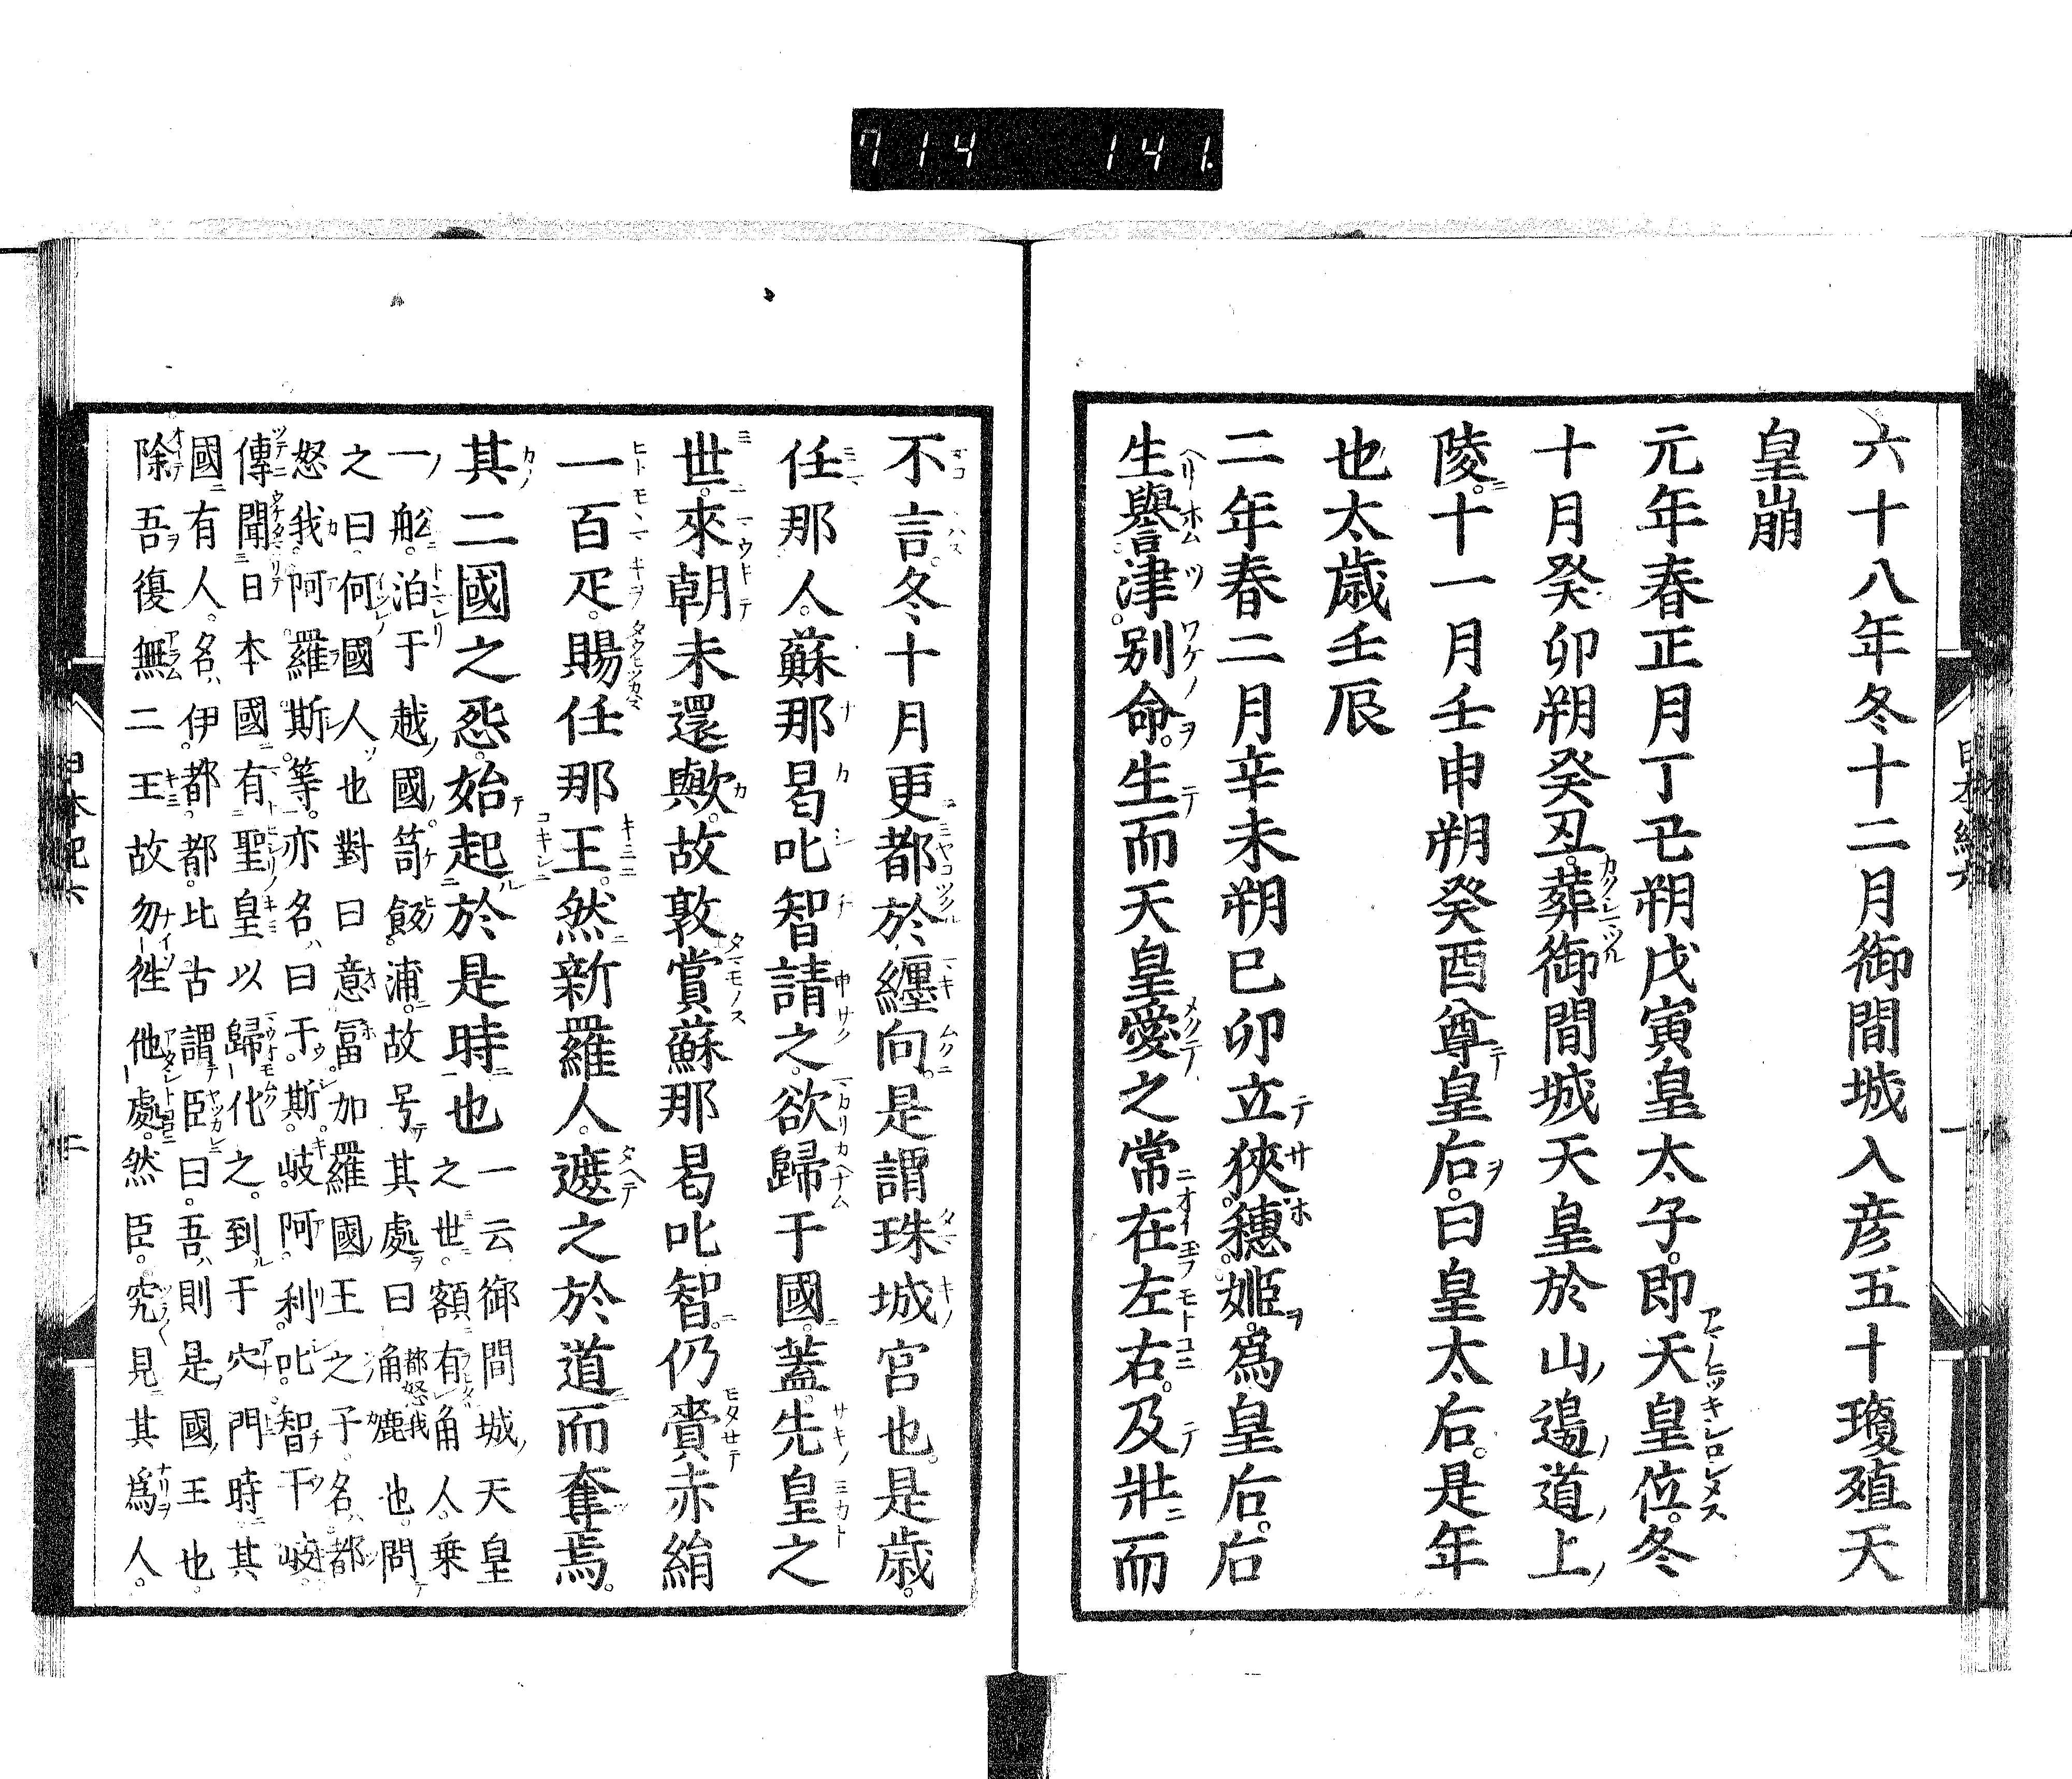 714 141.
六十八年冬十二月御間城入彦五十瓊殖天
皇崩
元年春正月丁丑朔戊寅皇太子即天皇位冬
十月癸卯朔癸丑葬御間城天皇於山邊道上
陵十一月壬申朔癸酉尊皇后曰皇太后是年
也太歳壬辰
二年春二月辛未朔己卯立狹穗姫爲皇后后
生譽津別命生而天皇愛之常在左右及壯而
不言冬十月更都於纏向是謂珠城宮也是歳
任那人蘇那曷叱智請之欲歸于國蓋先皇之
世來朝未還歟故敦賞蘇那曷叱智仍賚赤絹
一百疋賜任那王然新羅人遮之於道而奪焉
其二國之怨始起於是時也
一云御間城天皇
之世額有角人乗
一舩泊于越國笥飯浦故号其處曰角鹿也問
都怒我
之曰何國人也對曰意冨加羅國王之子名都
怒我阿羅斯等亦名曰于斯岐阿利叱智干岐
傳聞日本國有聖皇以歸化之到于穴門時其
國有人名伊都都比古謂臣曰吾則是國王也
除吾復無二王故勿徃他處然臣究見其爲人
日本紀六 二